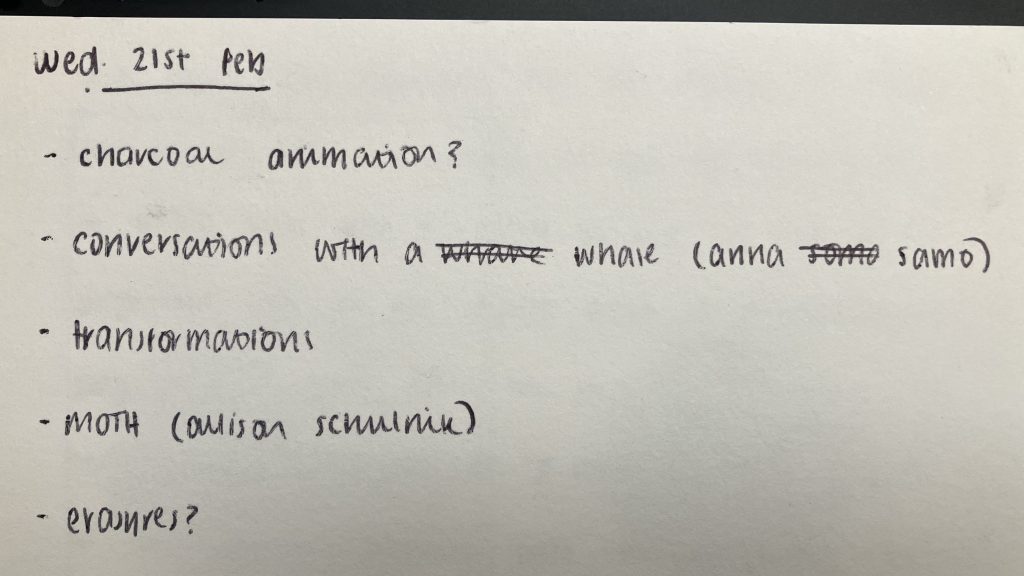 wed. 21st feb
- charcoal animation?
- conversations with a whale (anna samo)
- transformations
- MOTH (allison schulnik)
- erasures?